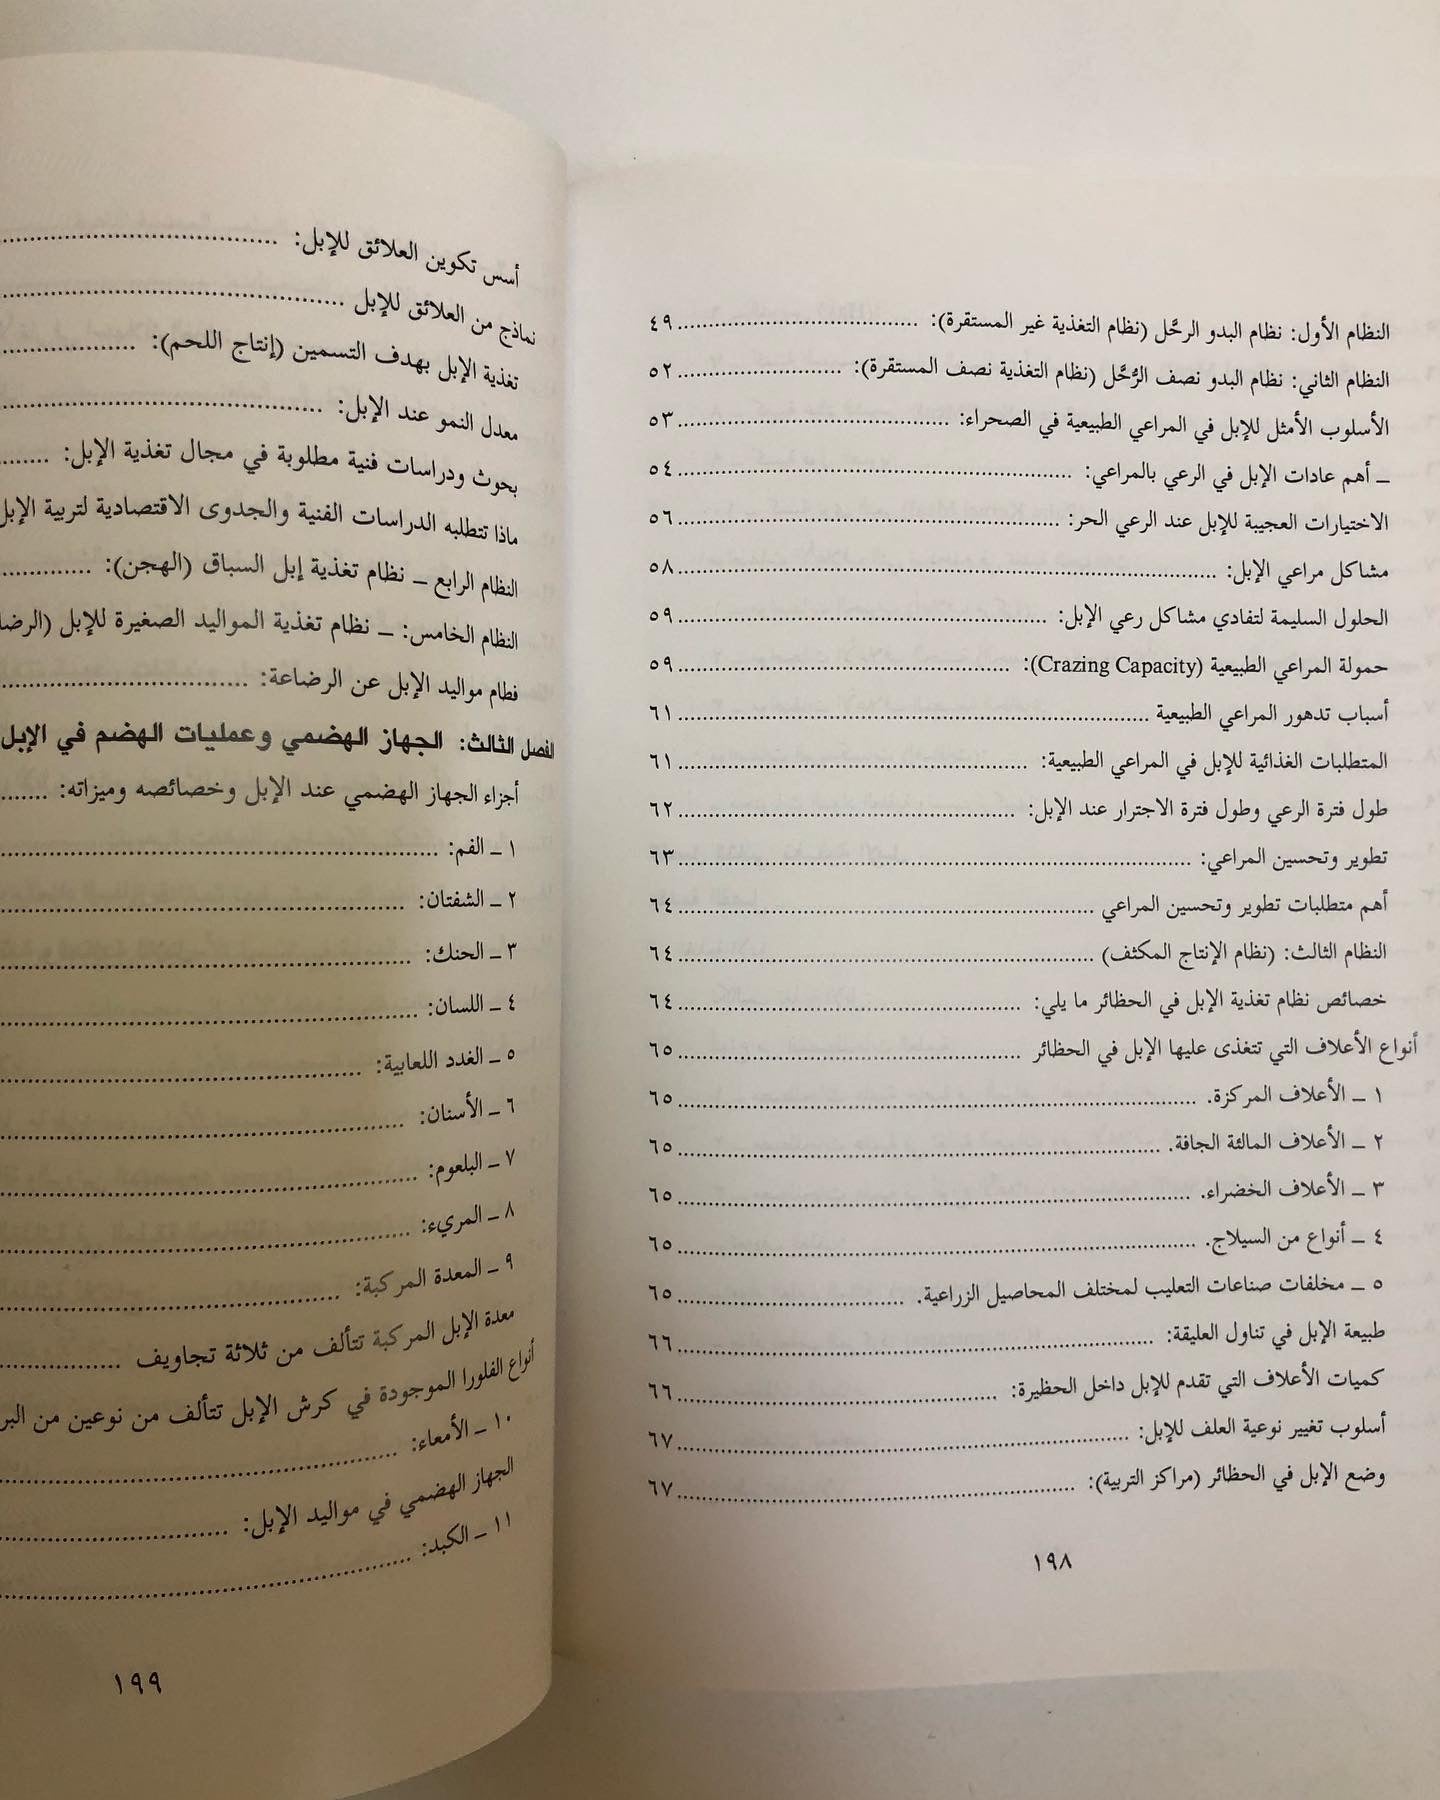 النظام الأول: نظام البدو الرحَّل (نظام التغذية غير المستقرة): ........ ٤٩
النظام الثاني: نظام البدو نصف الرُّحَّل (نظام التغذية نصف المستقرة): ........ ٥٢
الأسلوب الأمثل للإبل في المراعي الطبيعية في الصحراء: ........ ٥٣
ـ أهم عادات الإبل في الرعي بالمراعي: ........ ٥٤
الاختيارات العجيبة للإبل عند الرعي الحر: ........ ٥٦
مشاكل مراعي الإبل: ........ ٥٨
الحلول السليمة لتفادي مشاكل رعي الإبل: ........ ٥٩
حمولة المراعي الطبيعية (Crazing Capacity): ........ ٥٩
أسباب تدهور المراعي الطبيعية ........ ٦١
المتطلبات الغذائية للإبل في المراعي الطبيعية: ........ ٦١
طول فترة الرعي وطول فترة الاجترار عند الإبل: ........ ٦٢
تطوير وتحسين المراعي: ........ ٦٣
أهم متطلبات تطوير وتحسين المراعي ........ ٦٤
النظام الثالث: (نظام الإنتاج المكثف) ........ ٦٤
خصائص نظام تغذية الإبل في الحظائر ما يلي: ........ ٦٤
أنواع الأعلاف التي تتغذى عليها الإبل في الحظائر ........ ٦٥
١ ـ الأعلاف المركزة. ........ ٦٥
٢ ـ الأعلاف المالئة الجافة. ........ ٦٥
٣ ـ الأعلاف الخضراء. ........ ٦٥
٤ ـ أنواع من السيلاج. ........ ٦٥
٥ ـ مخلفات صناعات التعليب لمختلف المحاصيل الزراعية. ........ ٦٥
طبيعة الإبل في تناول العليقة: ........ ٦٦
كميات الأعلاف التي تقدم للإبل داخل الحظيرة: ........ ٦٦
أسلوب تغيير نوعية العلف للإبل: ........ ٦٧
وضع الإبل في الحظائر (مراكز التربية): ........ ٦٧
١٩٨
أسس تكوين العلائق للإبل: ........
نماذج من العلائق للإبل ........
تغذية الإبل بهدف التسمين (إنتاج اللحم): ........
معدل النمو عند الإبل: ........
بحوث ودراسات فنية مطلوبة في مجال تغذية الإبل: ........
ماذا تتطلبه الدراسات الفنية والجدوى الاقتصادية لتربية الإبل
النظام الرابع ـ نظام تغذية إبل السباق (الهجن): ........
النظام الخامس: ـ نظام تغذية المواليد الصغيرة للإبل (الرضا
فطام مواليد الإبل عن الرضاعة: ........
الفصل الثالث: الجهاز الهضمي وعمليات الهضم في الإبل
أجزاء الجهاز الهضمي عند الإبل وخصائصه وميزاته: ........
١ ـ الفم: ........
٢ ـ الشفتان: ........
٣ ـ الحنك: ........
٤ ـ اللسان: ........
٥ ـ الغدد اللعابية: ........
٦ ـ الأسنان: ........
٧ ـ البلعوم: ........
٨ ـ المريء: ........
٩ ـ المعدة المركبة: ........
معدة الإبل المركبة تتألف من ثلاثة تجاويف ........
أنواع الفلورا الموجودة في كرش الإبل تتألف من نوعين من البر
١٠ ـ الأمعاء: ........
الجهاز الهضمي في مواليد الإبل: ........
١١ ـ الكبد: ........
١٩٩